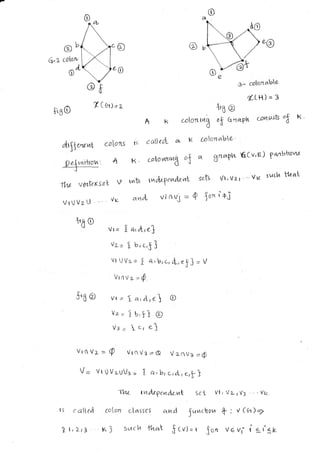 a
b
c
d
e
f
G-2 colou
① 
②
③
3- colorable
χ(G)=2
χ(H)=3
fig ①
fig ②
A K coloring of Graph consists of K.
different colors is called a K colorable.
Definition: A K. coloring of a graph G(V,E) partitions
The vertexset V into independent sets V1,V2,... Vk such that
V1UV2U ..... VK and Vi∩Vj = φ for i≠j
fig ①
V1= { a,d,e}
V2= { b,c,f}
V1UV2= { a,b,c,d,e,f} = V
V1∩V2=φ.
fig ② V1= { a,d,e} ①
V2= { b,f} ②
V3= { c, e}
V1∩V2 = φ V1∩V3=φ V2∩V3=φ
V= V1UV2UV3= { a,b,c,d,e,f}
The independent set V1,V2,V3 ... Vk
is called color classes and function f : V(G)→
{ 1,2,3 .. K} such that f(V)=i for V∈Vi 1≤i≤k